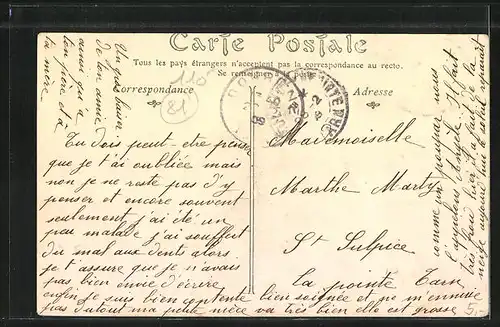 Carte Postale
Tous les pays étrangers n'acceptent pas la correspondance au recto.
Se renseigner à la poste
Correspondance
Adresse
110
81
Tu dois peut-être penser
que je t'ai oubliée mais
non je ne reste pas d'y
penser et encore souvent
seulement j'ai été un
peu malade j'ai souffert
du mal aux dents alors
je t'assure que je n'avais
pas bien envie d'écrire
enfin je suis bien contente bien soignée et ne m'ennuie
pas du tout ma petite nièce va très bien elle est grosse
comme un
nous
l'appelons Angèle. Il fait
très beau hier il a fait de la
neige aujourd'hui le soleil reparaît
Un gros baiser
de ton amie
ainsi qu'à
ton père et à
ta mère
Mademoiselle
Marthe Marty
St Sulpice
la pointe Tarn
5.-